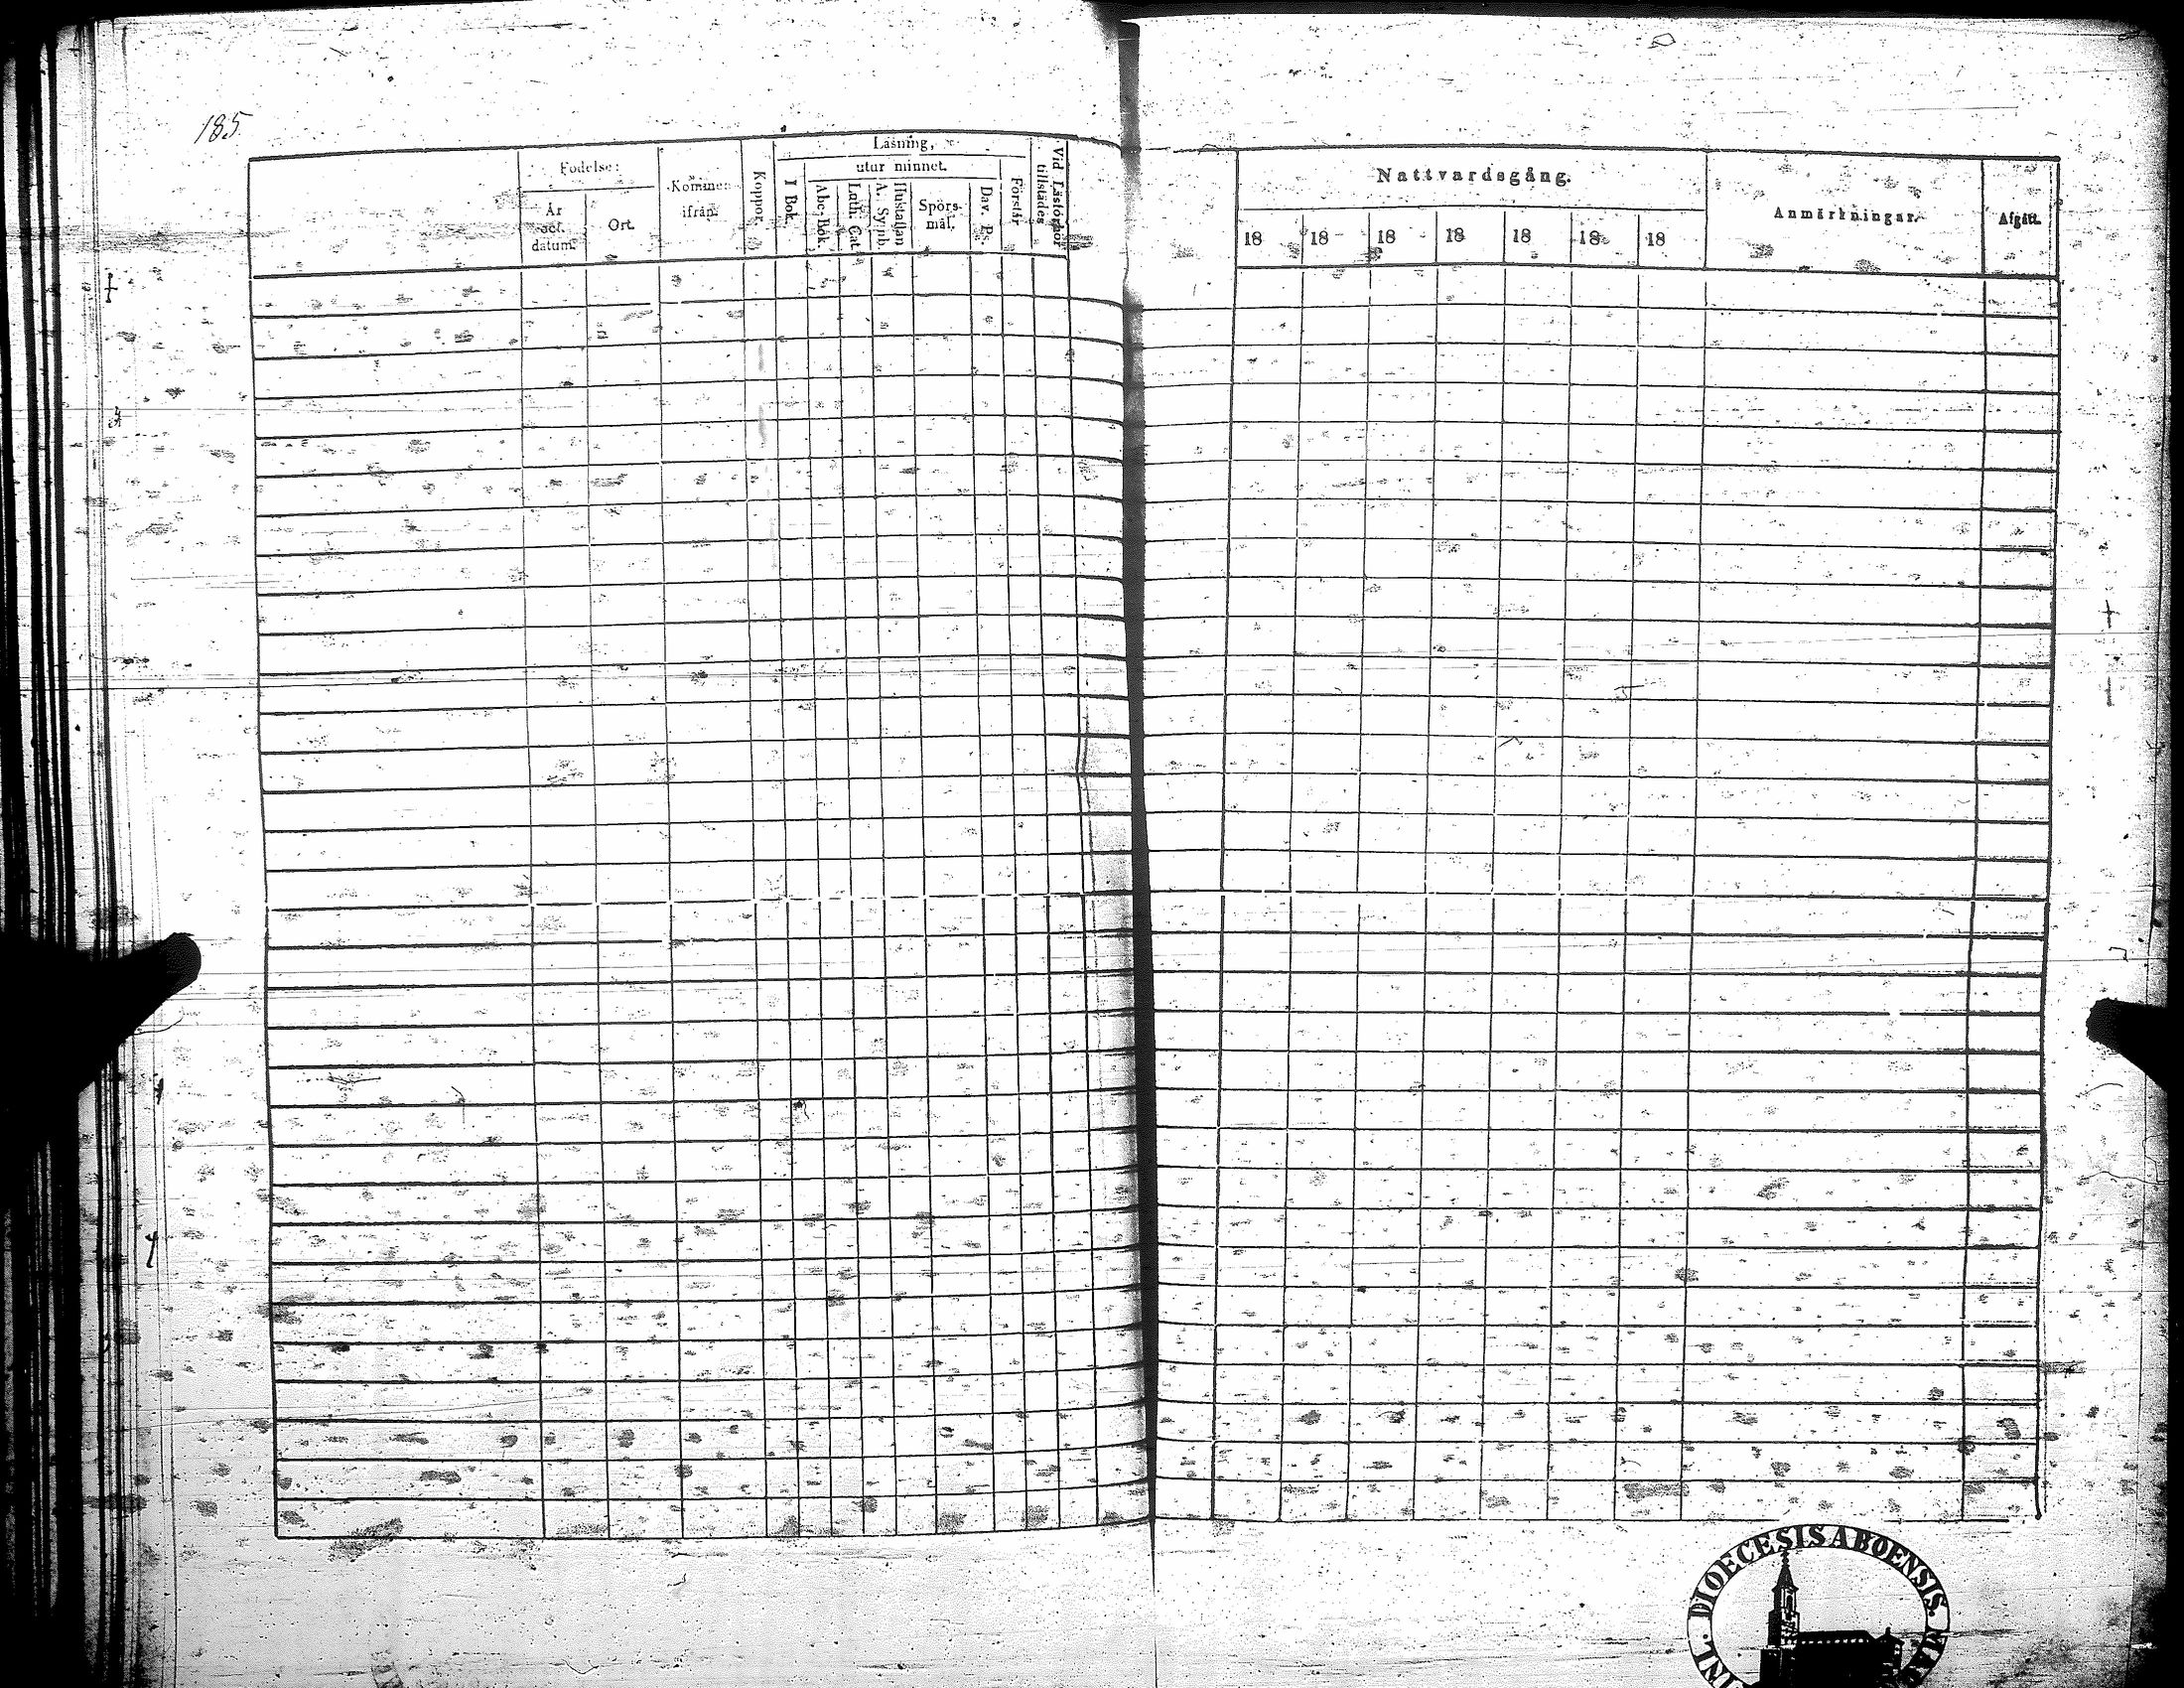 185
Födelse:
År och datum.
Ort.
Kommen ifrån.
Koppor.
Läsning,
I Bok.
utur minnet.
Abc-Bok.
Luth. Cat.
Hustaflan A. Symb.
Spörsmål.
Dav. Ps.
Förstår
Vid Läsförhör tillstädes
Nattvardsgång.
18 18 18 18 18 18 18
Anmärkningar.
Afgått.
DIOECESIS ABOENSIS.